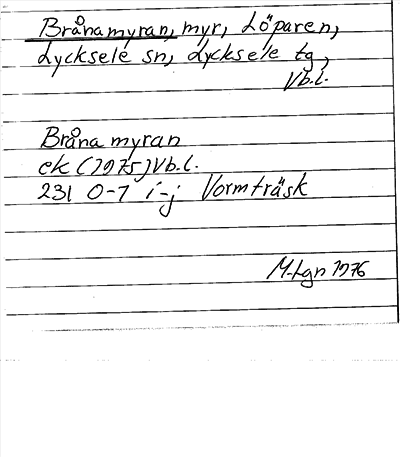 Brånamyran, myr, Löparen,
Lycksele sn, Lycksele tg,
Vb.l.
Bråna myran
ek (1975) Vb.l.
231 0-7 i-j Vormträsk
M.Lgn 1976